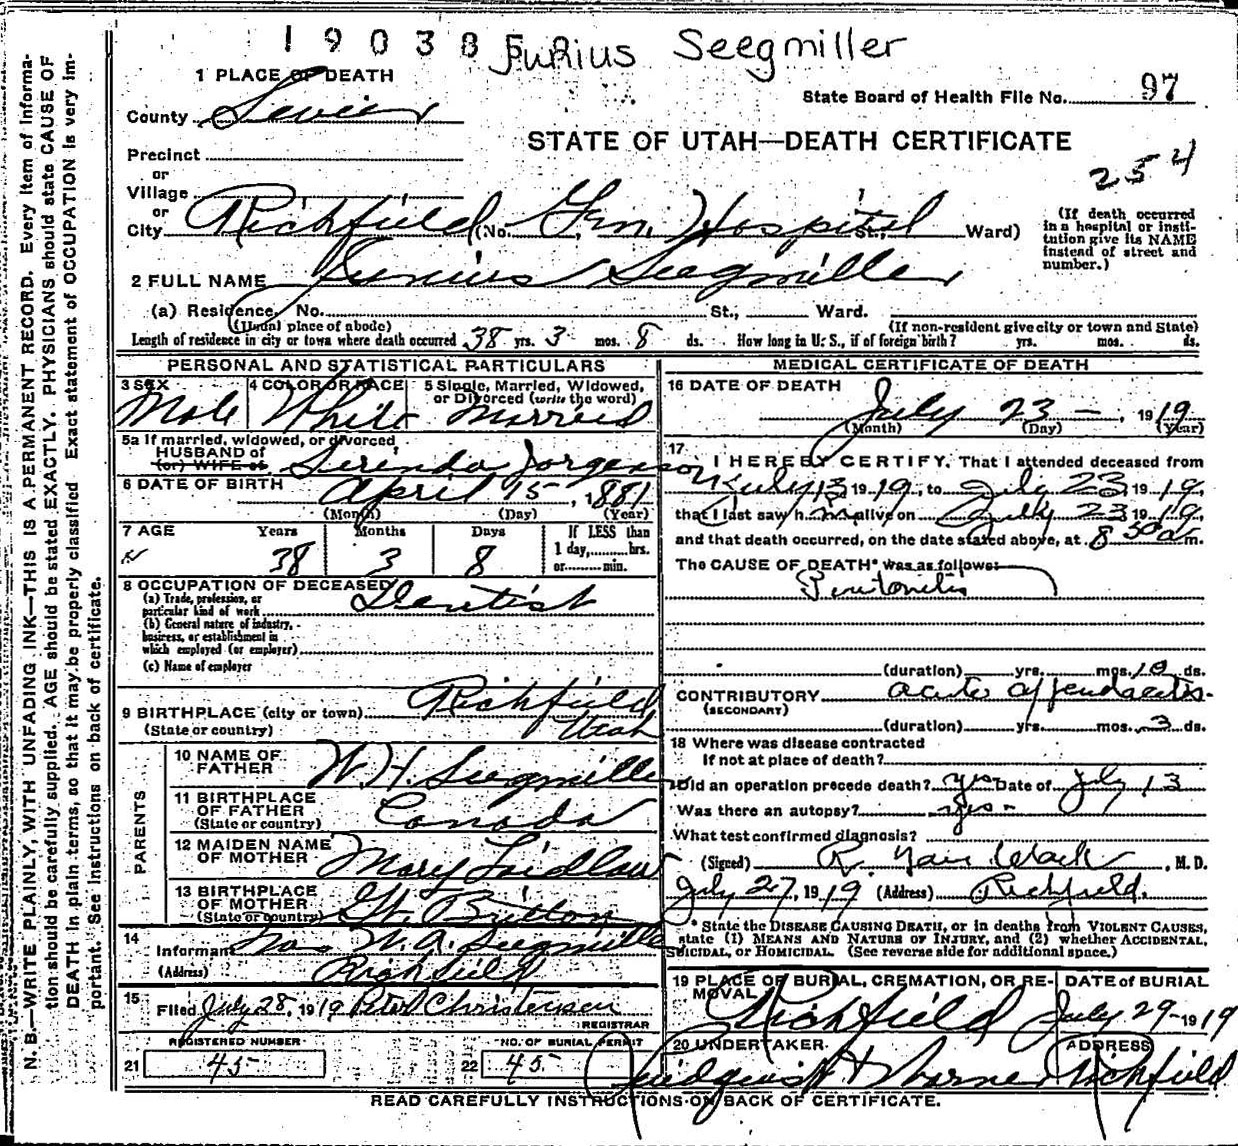 N. B.—WRITE PLAINLY, WITH UNFADING INK—THIS IS A PERMANENT RECORD. Every item of informa-
tion should be carefully supplied. AGE should be stated EXACTLY. PHYSICIANS should state CAUSE OF
DEATH in plain terms, so that it may be properly classified. Exact statement of OCCUPATION is very im-
portant. See instructions on back of certificate.
Seegmiller
1 PLACE OF DEATH
State Board of Health File No. 97
County Sevier
STATE OF UTAH—DEATH CERTIFICATE
254
Precinct
or
Village
or
City Richfield (No. Gen. Hospital St., Ward)
(If death occurred
in a hospital or insti-
tution give its NAME
instead of street and
number.)
2 FULL NAME Junius Seegmiller
(a) Residence, No. St., Ward.
(Usual place of abode) (If non-resident give city or town and State)
Length of residence in city or town where death occurred 38 yrs. 3 mos. 8 ds. How long in U. S., if of foreign birth? yrs. mos. ds.
PERSONAL AND STATISTICAL PARTICULARS
3 SEX Male
4 COLOR OR RACE White
5 Single, Married, Widowed,
or Divorced (write the word)
Married
5a If married, widowed, or divorced
HUSBAND of
(or) WIFE of
Jorgenson
6 DATE OF BIRTH April 15, 1881
(Month) (Day) (Year)
7 AGE Years Months Days If LESS than
1 day, hrs.
or min.
38 3 8
8 OCCUPATION OF DECEASED
(a) Trade, profession, or
particular kind of work Dentist
(b) General nature of industry,
business, or establishment in
which employed (or employer)
(c) Name of employer
9 BIRTHPLACE (city or town) Richfield
(State or country) Utah
PARENTS
10 NAME OF
FATHER W. H. Seegmiller
11 BIRTHPLACE
OF FATHER
(State or country) Canada
12 MAIDEN NAME
OF MOTHER Mary Laidlaw
13 BIRTHPLACE
OF MOTHER
(State or country) Gt. Britton
14 Informant W. A. Seegmiller
(Address) Richfield
15 Filed July 28, 1919 Peter Christensen
REGISTRAR
REGISTERED NUMBER
21 45
NO. OF BURIAL PERMIT
22 45
MEDICAL CERTIFICATE OF DEATH
16 DATE OF DEATH
July 23 -, 1919
(Month) (Day) (Year)
17
I HEREBY CERTIFY. That I attended deceased from
July 13, 1919, to July 23, 1919,
that I last saw him alive on July 23, 1919,
and that death occurred, on the date stated above, at 8 50 a m.
The CAUSE OF DEATH* was as follows:
Peritonitis
(duration) yrs. mos. 10 ds.
CONTRIBUTORY acute appendicitis.
(SECONDARY)
(duration) yrs. mos. 3 ds.
18 Where was disease contracted
If not at place of death?
Did an operation precede death? yes Date of July 13
Was there an autopsy? yes -
What test confirmed diagnosis?
(Signed) , M. D.
July 27, 1919 (Address) Richfield.
* State the DISEASE CAUSING DEATH, or in deaths from VIOLENT CAUSES,
state (1) MEANS AND NATURE OF INJURY, and (2) whether ACCIDENTAL,
SUICIDAL, or HOMICIDAL. (See reverse side for additional space.)
19 PLACE OF BURIAL, CREMATION, OR RE-
MOVAL Richfield
DATE of BURIAL
July 29 - 1919
20 UNDERTAKER.
ADDRESS
Richfield
READ CAREFULLY INSTRUCTIONS ON BACK OF CERTIFICATE.